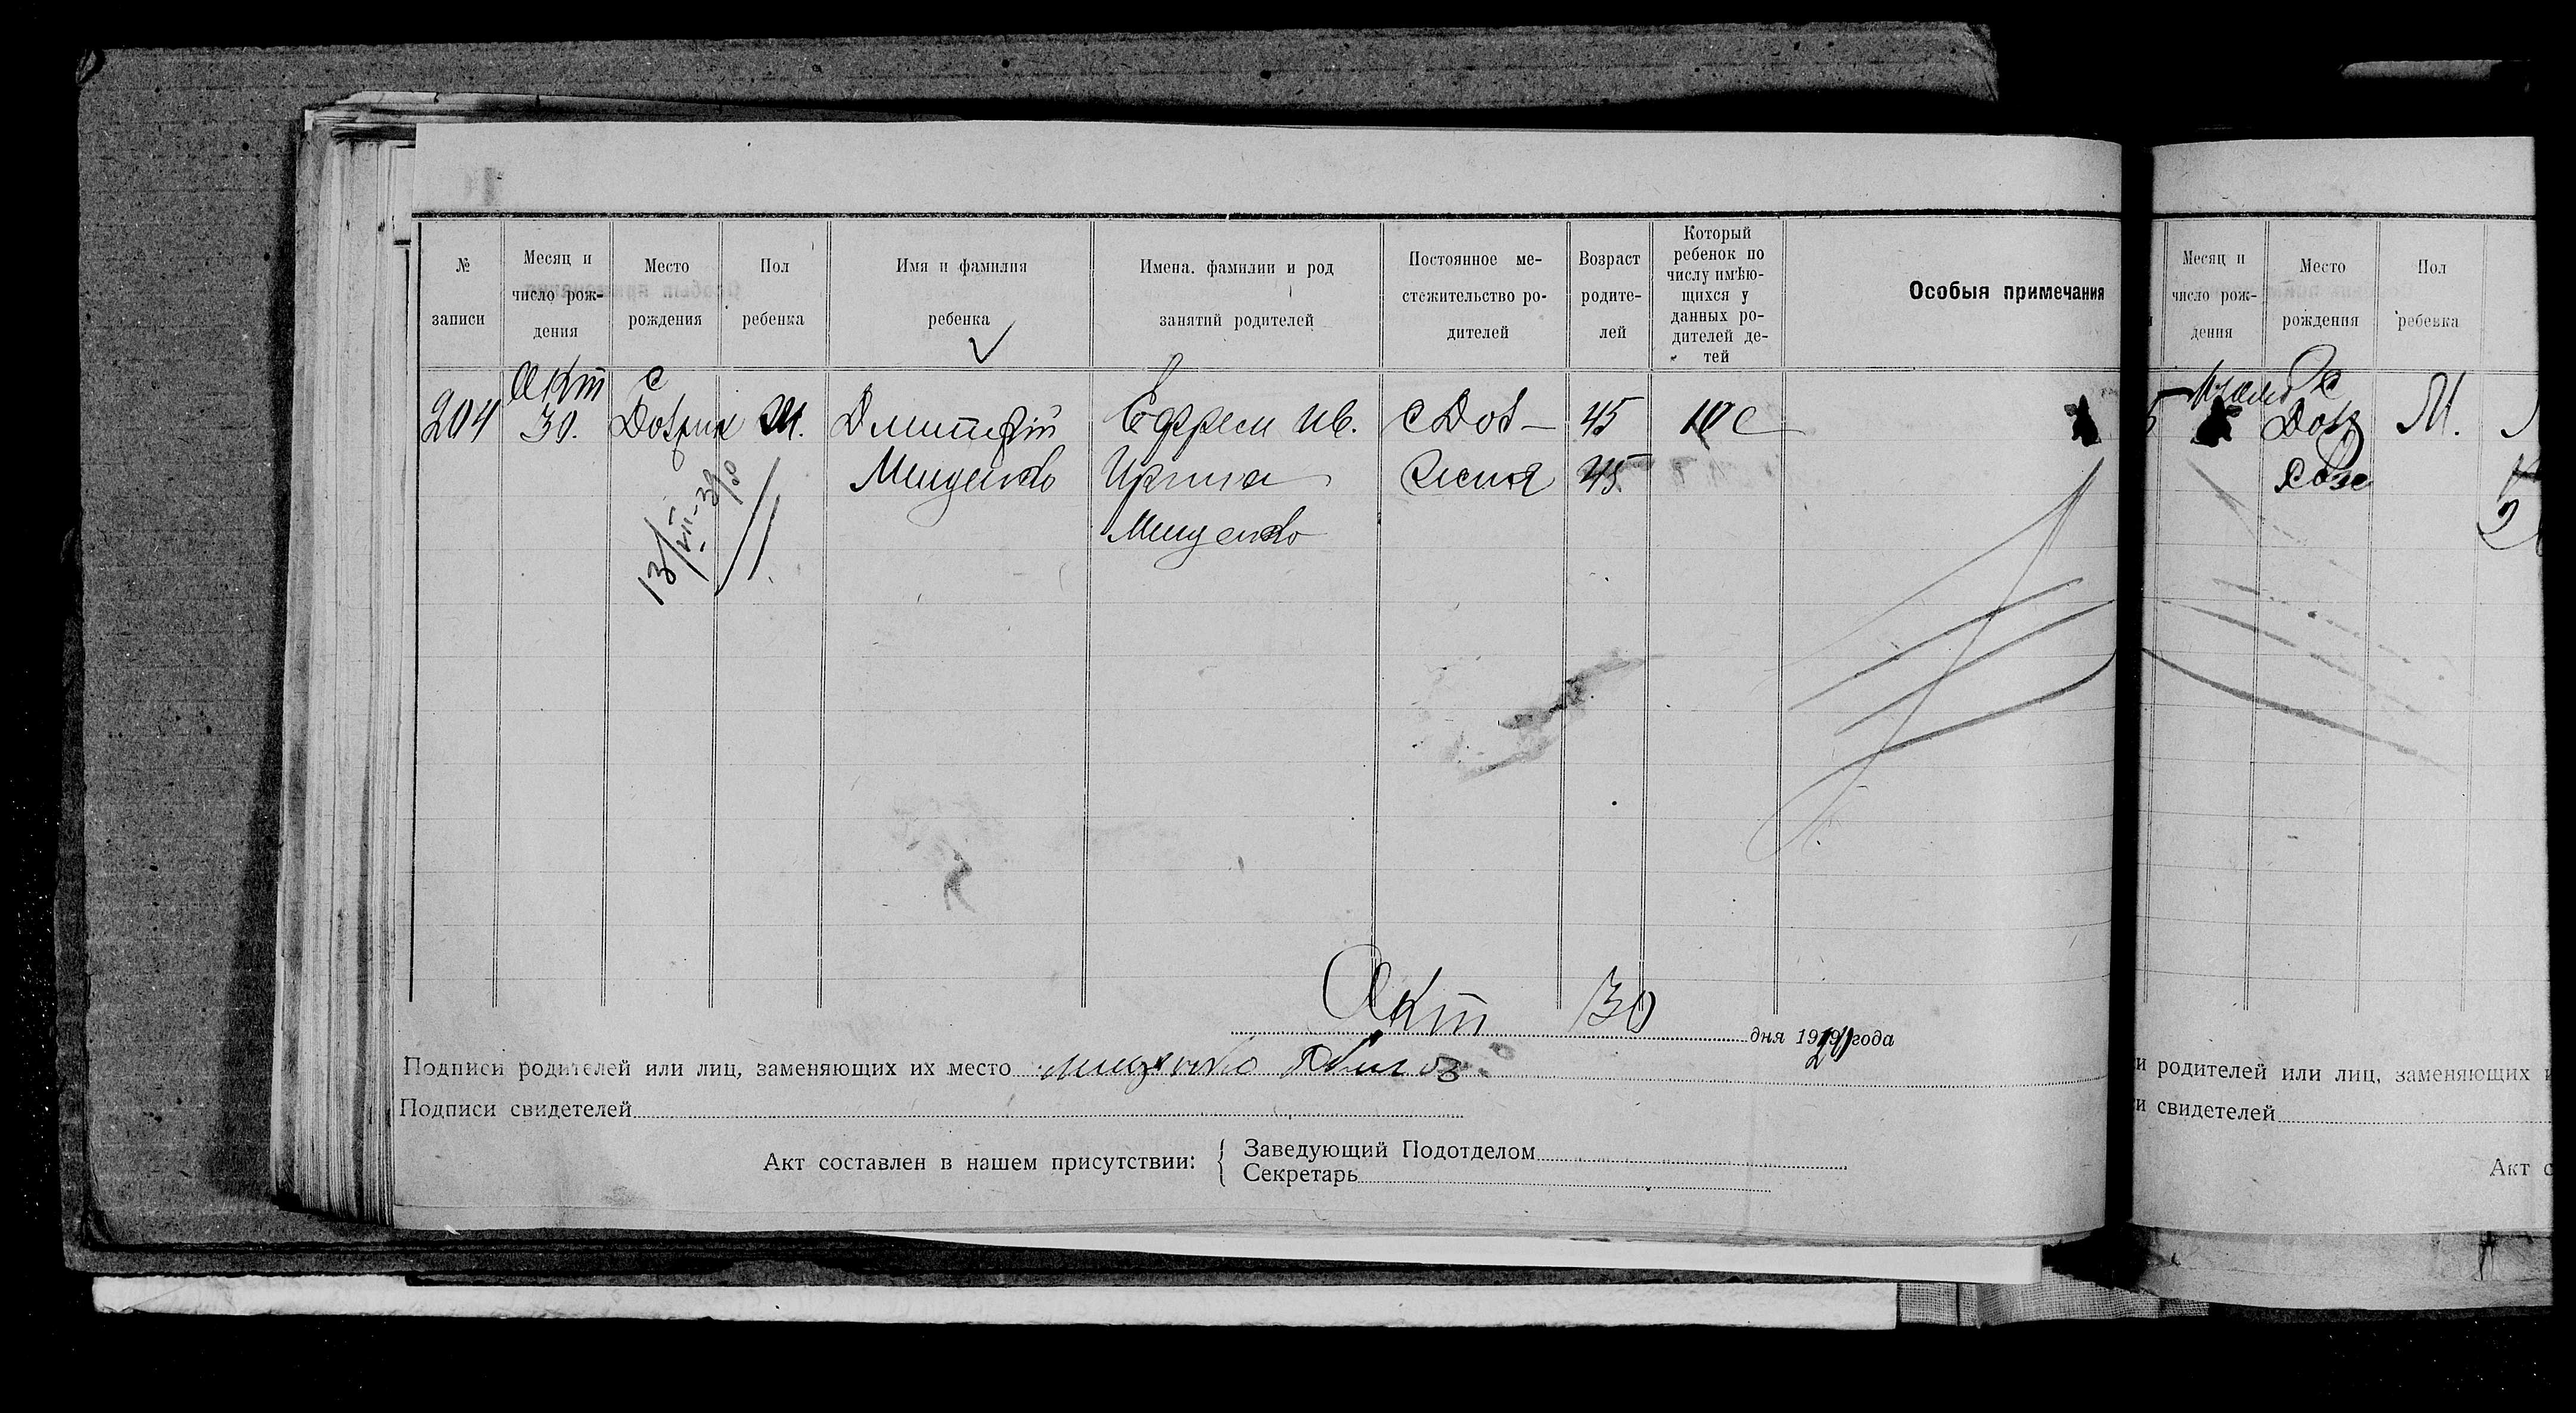 № записи
Месяц и число рождения
Место рождения
Пол ребенка
Имя и фамилия ребенка
Имена. фамилии и род занятий родителей
Постоянное местожительство родителей
Возраст родителей
Который ребенок по числу имѣющихся у данных родителей детей
Особыя примечания
204
Окт
30.
с
М.
Дмитрий
Мищенко
Ефрем Ив.
Ирина
Мищенко
с Доб–
45
45
10
13/VII-39
Окт 30 дня 1920 года
Подписи родителей или лиц, заменяющих их место Мищенко
Подписи свидетелей
Акт составлен в нашем присутствии:
Заведующий Подотделом
Секретарь
Месяц и число рождения
Место рождения
Пол ребенка
с
М.
и родителей или лиц, заменяющих
и свидетелей
Акт с